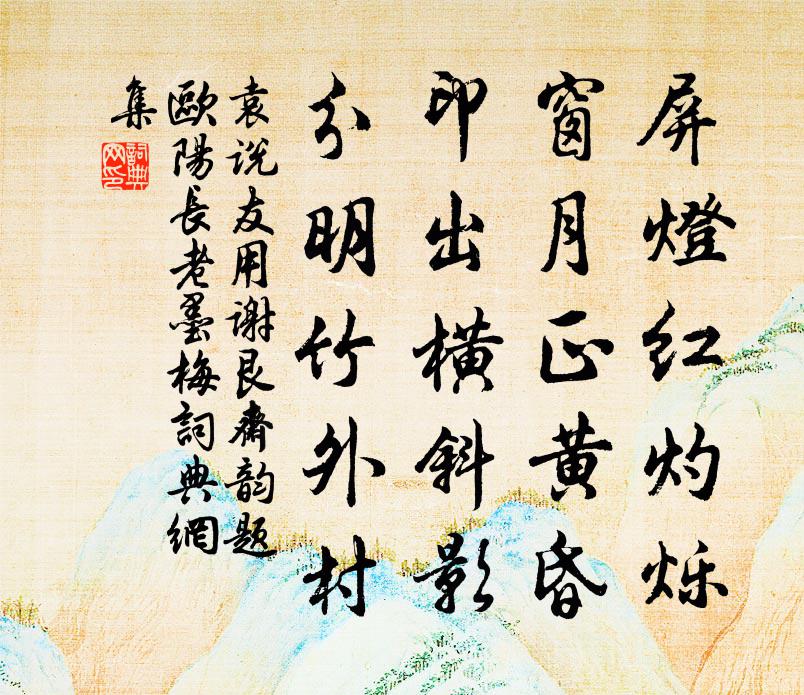 屏燈红灼烁
窗月正黄昏
印出橫斜影
分明竹外村
袁说友用谢艮斋韵题
歐陽長老墨梅詞典網
集
詞典網印